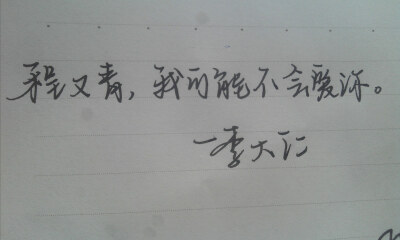 程又青，我可能不会爱你。
—李大仁